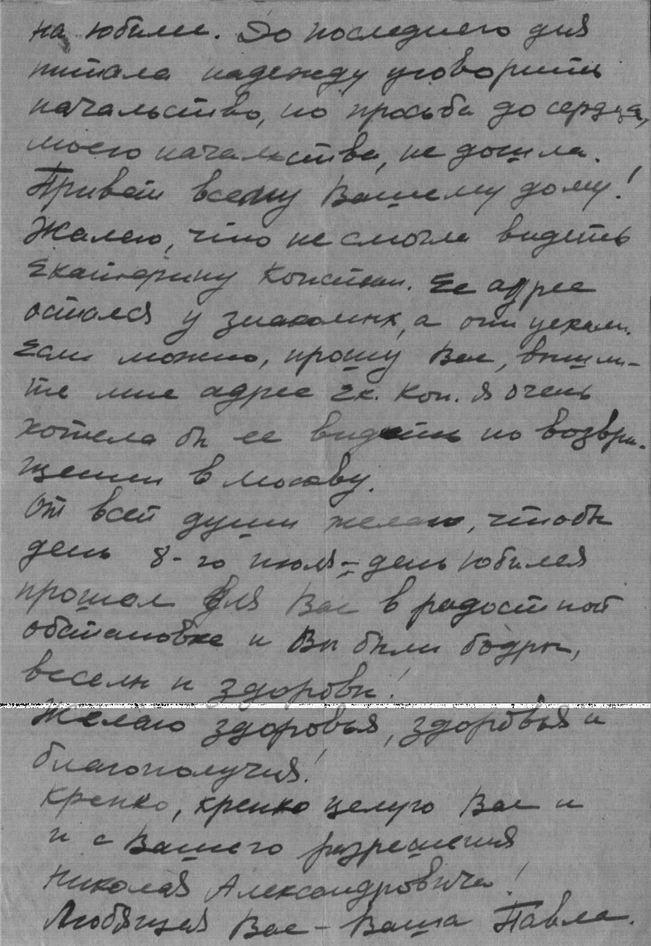 на юбилее. До последнего дня
питала надежду уговорить
начальство, но просьба до сердца,
моего начальства, не дошла.
Привет всему Вашему дому!
Жалею, что не смогла видеть
Екатерину Констан. Ее адрес
остался у знакомых, а они уехали.
Если можно, прошу Вас, вышли-
те мне адрес Ек. Кон. Я очень
хотела бы ее видеть по возвра-
щении в Москву.
От всей души желаю, чтобы
день 8-го июля - день юбилея
прошел для Вас в радостной
обстановке и Вы были бодры,
веселы и здоровы!
Желаю здоровья, здоровья и
благополучия!
Крепко, крепко целую Вас и
и с Вашего разрешения
Николая Александровича!
Любящая Вас - Ваша Павла.